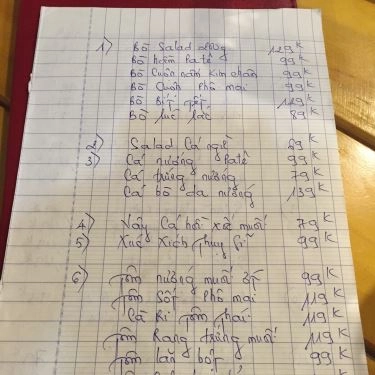 1) Bò Salad 129K
Bò hầm Patê 99K
Bò Cuốn nấm Kim châm 99K
Bò Cuốn Phô mai 99K
Bò Bít tết 119K
Bò lúc lắc 89K
2) Salad Cá ngừ 59K
3) Cá nướng Patê 99K
Cá trứng nướng 79K
Cá bò da nướng 139K
4) Vây Cá hồi xốc muối 79K
5) Xúc Xích Thụy Sĩ 99K
6) Tôm nướng muối ớt 99K
Tôm Sốt Phô mai 119K
Cà Ri Tôm Thái 119K
Tôm Rang trứng muối 119K
Tôm lăn bột 99K